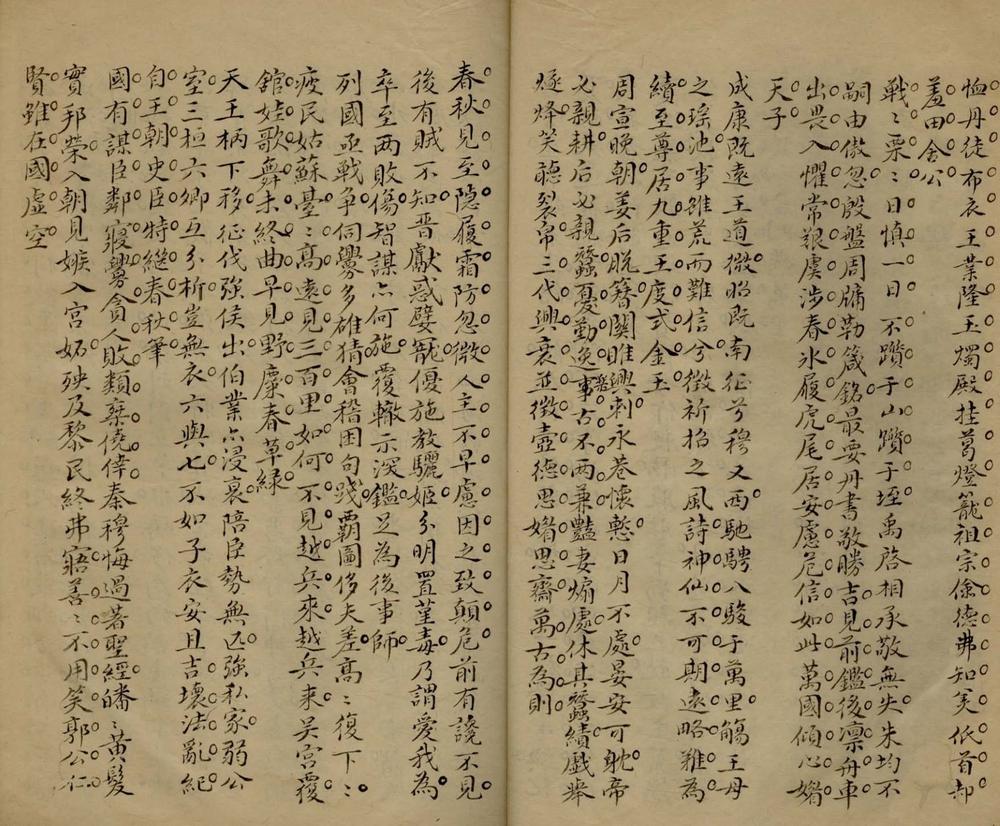 恤丹徒布衣王業隆玉燭殿挂葛燈籠祖宗儉德弗知美低首却
羞田舍公
戰〻栗〻日慎一日不躓于山躓于垤禹啓相承敬無失朱均不
嗣由傲忽殷盤周牖勒箴銘最要丹書敬勝吉見前鑑後凛舟車
出畏入懼常艱虞涉春氷履虎尾居安慮危信如此萬國傾心媚
天子
成康既遠王道微昭既南征兮穆又西馳騁八駿于萬里觴王母
之瑶池事雖荒而難信兮徵祈招之風詩神仙不可期遠略難為
續至尊居九重王度式金玉
周宣晩朝姜后脱簪關雎興刺永巷懷慙日月不處晏安可躭帝
必親耕后必親蠶憂勤逸事古不兩兼豔妻煽處休其蠶績戲擧
燧烽笑聽裂帛三代興衰並徵壼德思媚思齋萬古為則
春秋見至隱履霜防忽微人主不早慮因之致顛危前有讒不見
後有賊不知晋獻惑嬖寵優施教驪姬分明置堇毒乃謂愛我為
卒至兩敗傷智謀亦何施覆轍示深鑑足為後事師
列國亟戰争伺釁多雄猜會稽困句踐覇圖侈夫差高〻復下〻
疲民姑蘇臺〻高遠見三百里如何不見越兵來越兵来吴宫覆
舘娃歌舞未終曲早見野麋春草緑
天王柄下移征伐強侯出伯業亦浸衰陪臣勢無匹強私家弱公
室三桓六卿互分析豈無衣六與七不如子衣安且吉壞法亂紀
自王朝史臣特継春秋筆
國有謀臣鄰寢釁貪人敗類棄僥倖秦穆悔過著聖經皤〻黄髮
實邦榮入朝見嫉入宫妬殃及黎民終弗寤善〻不用笑郭公仁
賢雖在國虚空